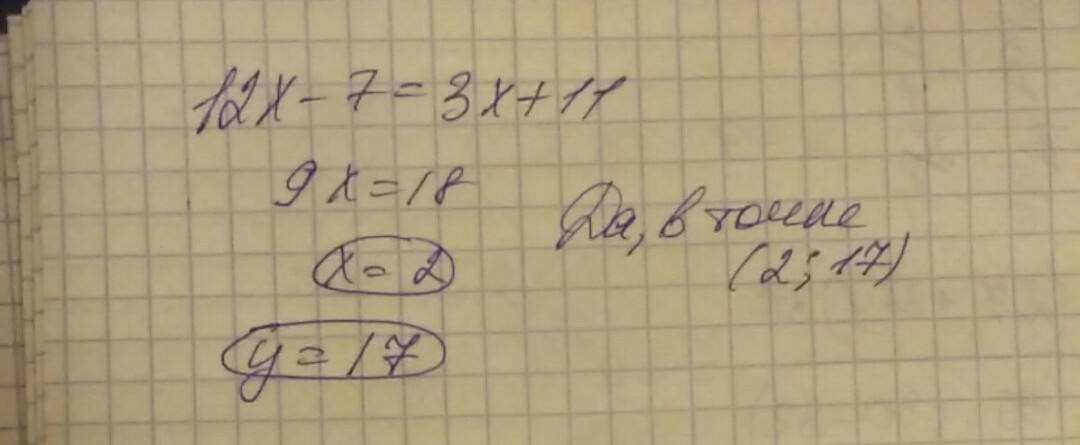 12x - 7 = 3x + 11
9x = 18
x = 2
y = 17
Да, в точке
(2; 17)